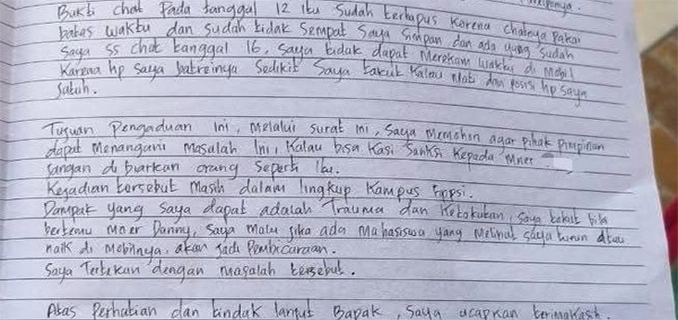 Bukti chat Pada tanggal 12 itu Sudah terhapus Karena chatnya Pakai
batas waktu dan Sudah tidak Sempat Saya Simpan dan ada yang Sudah
Saya SS chat tanggal 16, saya tidak dapat Merekam waktu di Mobil
Karena hp Saya batreinya Sedikit Saya takut Kalau Mati dan posisi hp Saya
Jatuh.
Tujuan Pengaduan Ini, Melalui Surat Ini, Saya Memohon agar Pihak Pimpinan
dapat Menangani Masalah Ini, Kalau bisa Kasi Sanksi Kepada Mner
Jangan di biarkan orang Seperti Itu.
Kejadian tersebut Masih dalam lingkup Kampus Fippsi.
Dampak yang Saya dapat adalah Trauma dan Ketakutan, Saya takut bila
bertemu Mner Danny, Saya Malu jika ada Mahasiswa yang Melihat Saya turun atau
naik di Mobilnya akan Jadi Pembicaraan.
Saya Tertekan dengan Masalah tersebut.
Atas Perhatian dan tindak lanjut Bapak, Saya ucapkan terimakasih.